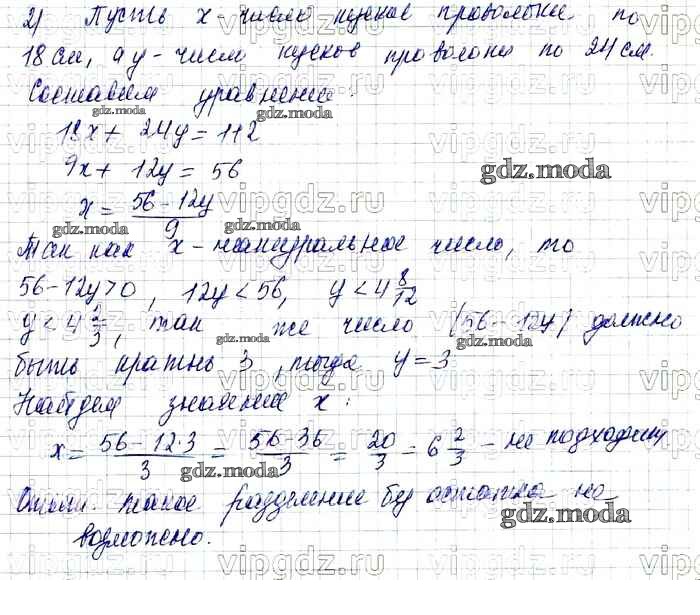 2) Пусть x - число кусков проволоки по
18 см, а y - число кусков проволоки по 24 см.
Составим уравнение:
18x + 24y = 112
9x + 12y = 56
x = (56 - 12y)/9
Так как x - натуральное число, то
56 - 12y > 0, 12y < 56, y < 4 8/12
y < 4 2/3, так же число (56 - 12y) должно
быть кратно 3, тогда y = 3
Найдем значение x:
x = (56 - 12·3)/3 = (56 - 36)/3 = 20/3 = 6 2/3 - не подходит
Ответ: такое разделение без остатка не
возможно.
gdz.moda
vipgdz.ru